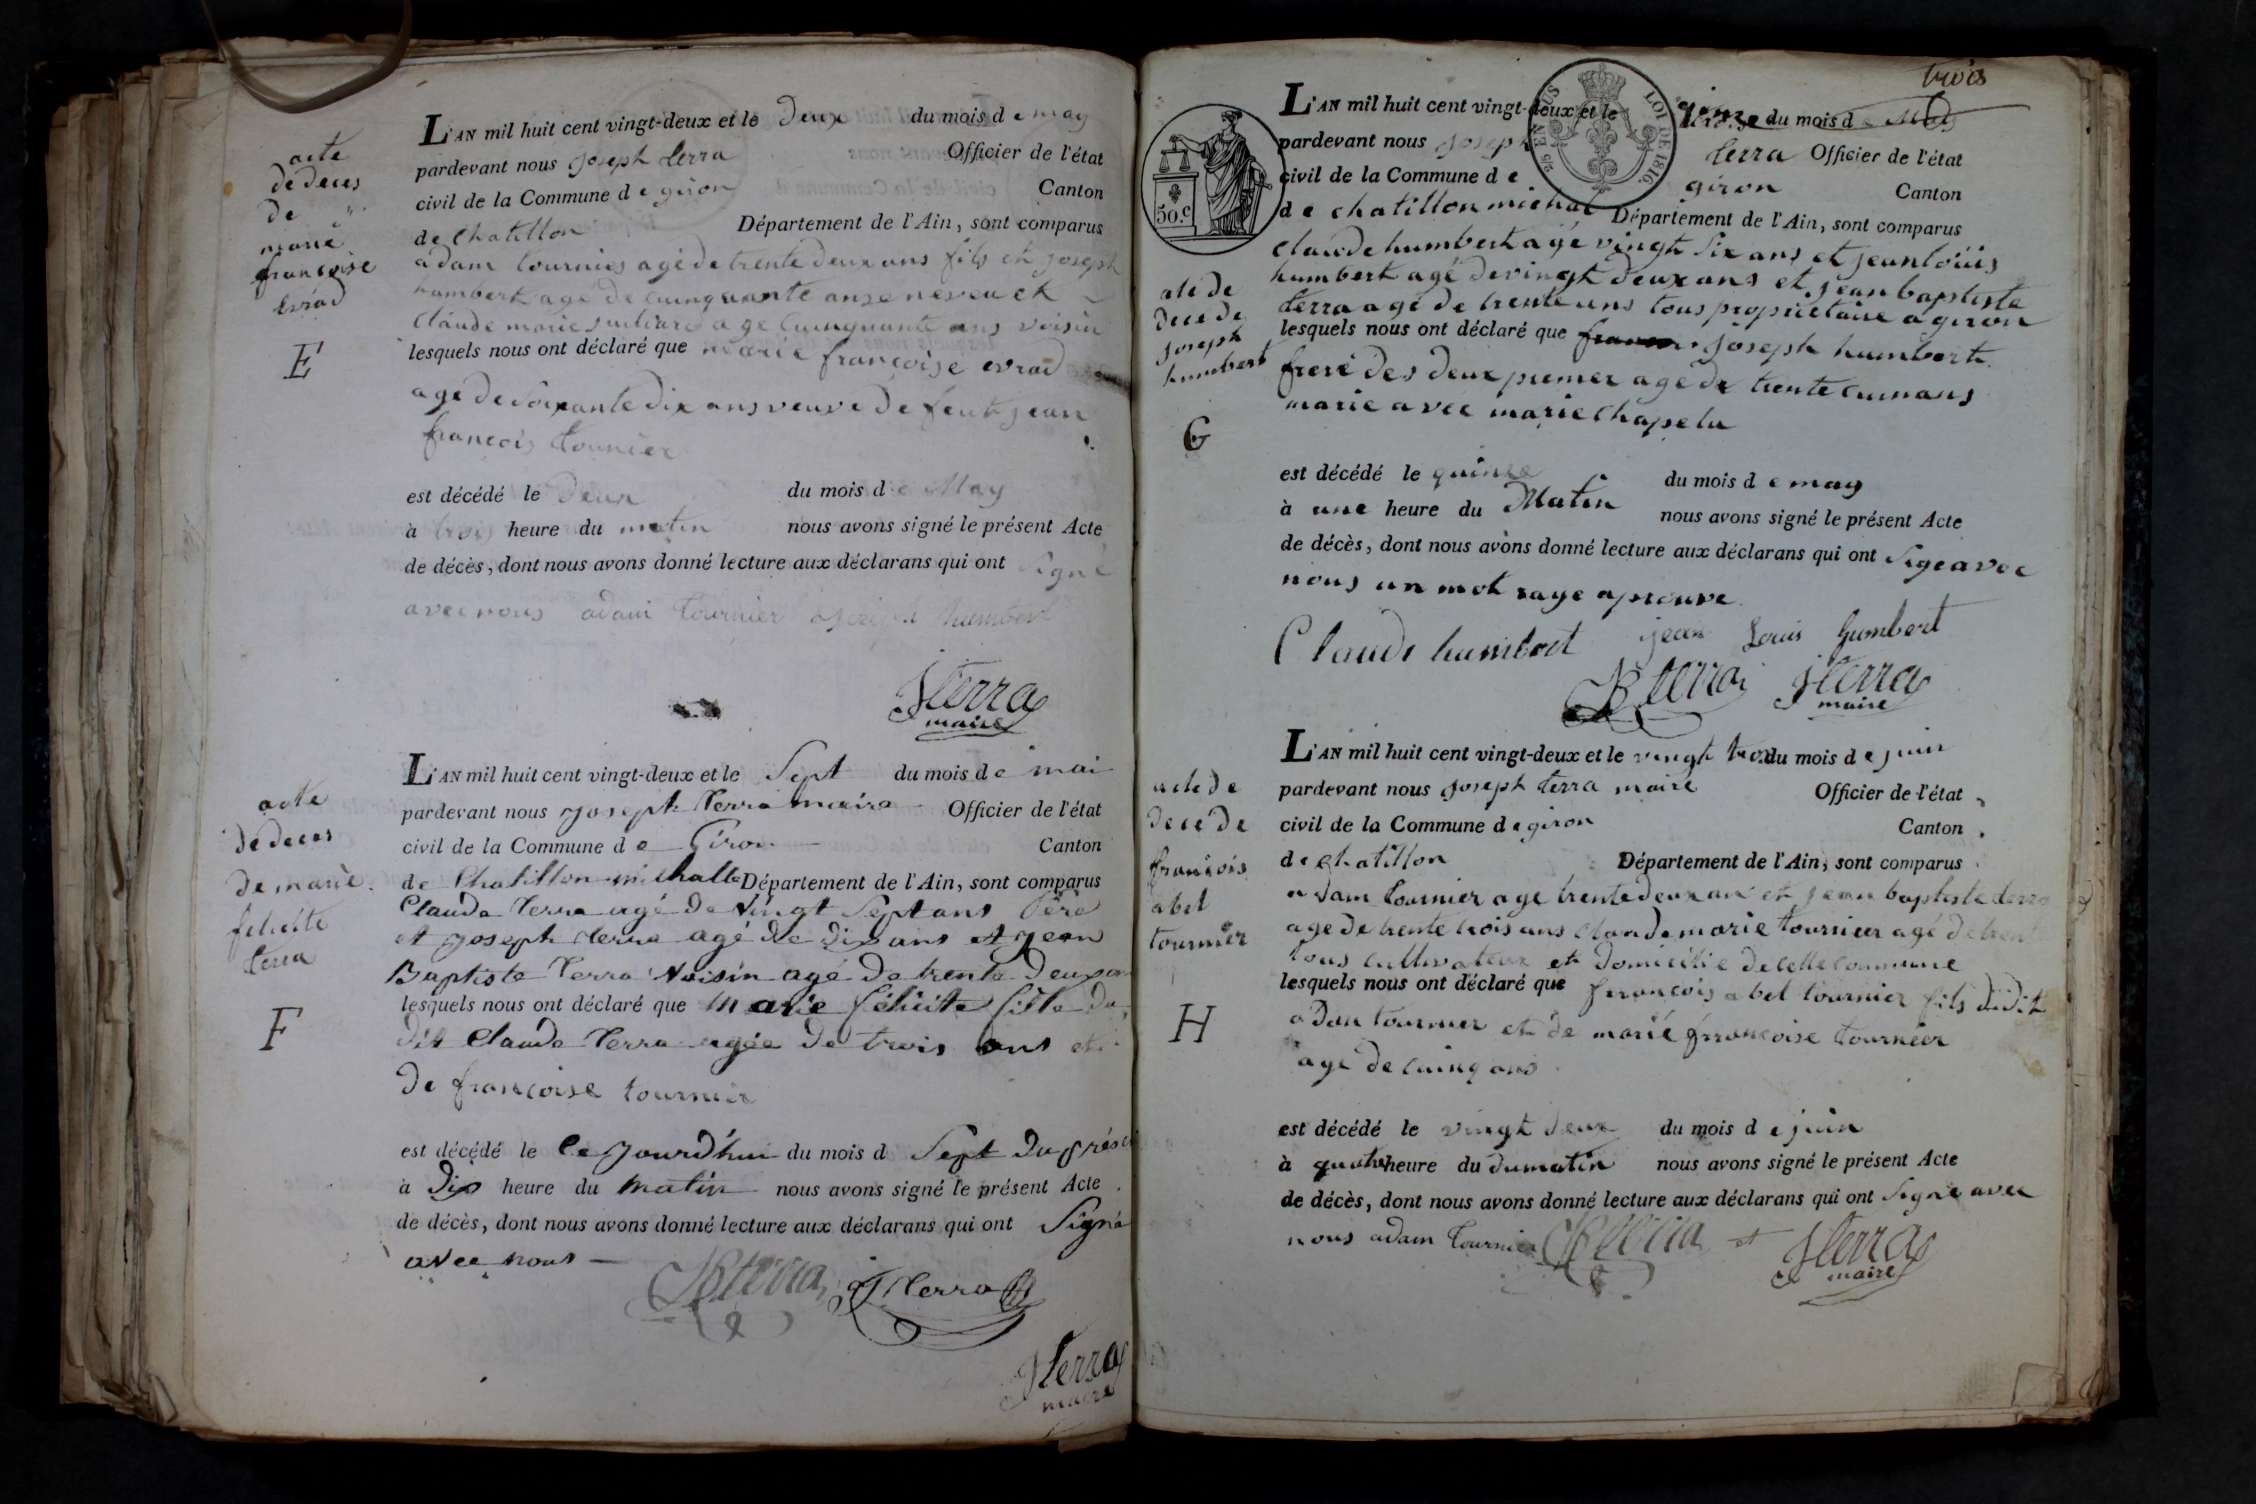 acte
de deces
de
marie
françoise
evrad
E
L'AN mil huit cent vingt-deux et le deux du mois de may
pardevant nous joseph terra Officier de l'état
civil de la Commune de giron Canton
de Chatillon Département de l'Ain, sont comparus
adam tournier agé de trente deux ans fils et joseph
humbert agé de cuinquante ans neveu et
Claude marie agé cuinquante ans voisin
lesquels nous ont déclaré que marie françoise evrad
agé de soixante dix ans veuve de feut jean
francois tournier
est décédé le deux du mois de May
à trois heure du matin nous avons signé le présent Acte
de décès, dont nous avons donné lecture aux déclarans qui ont signé
avec nous adam tournier joseph humbert
Jterra
maire
acte
de deces
de marie
felicite
terra
F
L'AN mil huit cent vingt-deux et le Sept du mois de mai
pardevant nous joseph Terra maire Officier de l'état
civil de la Commune de Giron Canton
de Chatillon michalle Département de l'Ain, sont comparus
Claude Terra agé de vingt Sept ans Père
et joseph Terra agé de dix ans et jean
Baptiste Terra Voisin agé de trente deux an
lesquels nous ont déclaré que Marie félicite fille du
dit Claude Terra agée de trois ans et
de françoise tournier
est décédé le ce jourd'hui du mois d Sept du présent
à Dix heure du matin nous avons signé le présent Acte
de décès, dont nous avons donné lecture aux déclarans qui ont Signé
avec nous
JBterra JTerra
Jterra
maire
trois
50.c
25 EN SUS
LOI DE 1816.
ate de
dece de
joseph
humbert
G
L'AN mil huit cent vingt-deux et le quinze du mois de May
pardevant nous joseph terra Officier de l'état
civil de la Commune de giron Canton
de chatillon michal Département de l'Ain, sont comparus
claude humbert agé vingt six ans et jean loüis
humbert agé de vingt deux ans et jean baptiste
terra agé de trente ans tous propriétaire a giron
lesquels nous ont déclaré que joseph humbert
frere des deux premer age de trente cuin ans
marie avec marie Chapelu
est décédé le quinze du mois de may
à une heure du Matin nous avons signé le présent Acte
de décès, dont nous avons donné lecture aux déclarans qui ont sige avec
nous un mot raye aprouve
Claude humbert jean Louis humbert
JBterra Jterra
maire
acte de
dece de
françois
abel
tournier
H
L'AN mil huit cent vingt-deux et le vingt trois du mois de juin
pardevant nous joseph terra maire Officier de l'état
civil de la Commune de giron Canton
de chatillon Département de l'Ain, sont comparus
adam tournier age trente deux an et jean baptiste terra
age de trente trois ans claude marie tournier agé de trente
tous cultivateur et domicilie de cette commune
lesquels nous ont déclaré que françois abel tournier fils dudit
adam tournier et de marie françoise tournier
agé de cuinq ans
est décédé le vingt deux du mois de juin
à quatre heure du dumatin nous avons signé le présent Acte
de décès, dont nous avons donné lecture aux déclarans qui ont signe avec
nous adam tournier JBterra et Jterra
maire